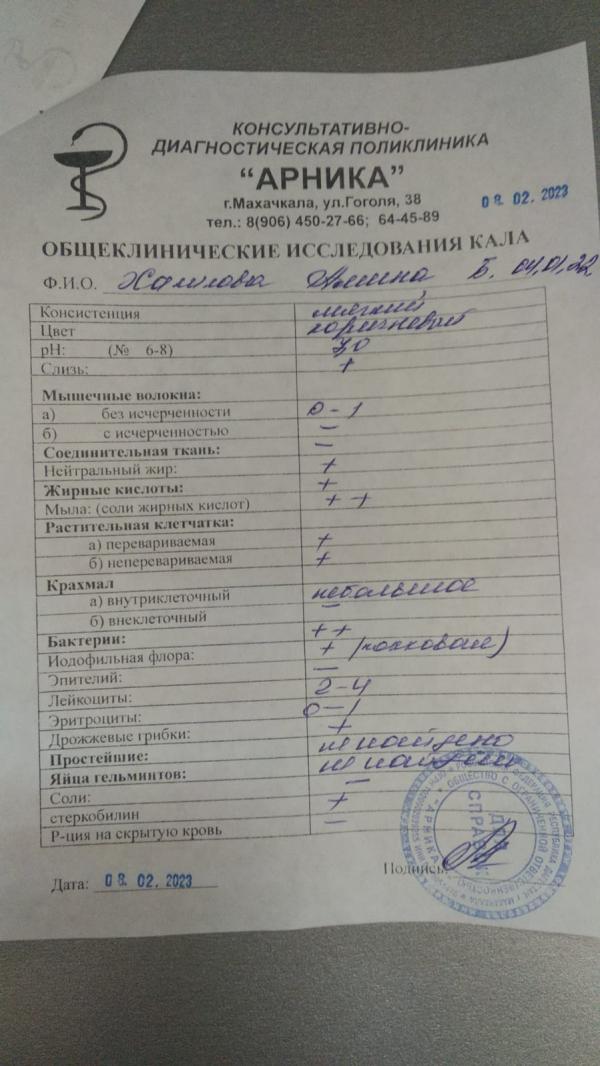 КОНСУЛЬТАТИВНО-
ДИАГНОСТИЧЕСКАЯ ПОЛИКЛИНИКА
“АРНИКА”
г.Махачкала, ул.Гоголя, 38
08. 02. 2023
тел.: 8(906) 450-27-66; 64-45-89
ОБЩЕКЛИНИЧЕСКИЕ ИССЛЕДОВАНИЯ КАЛА
Ф.И.О. Б. 04.01.22
Консистенция мягкий
Цвет коричневый
pH: (№ 6-8)
Слизь: +
Мышечные волокна:
а) без исчерченности 0-1
б) с исчерченностью –
Соединительная ткань: –
Нейтральный жир: +
Жирные кислоты: +
Мыла: (соли жирных кислот) + +
Растительная клетчатка:
а) перевариваемая +
б) непереваримаемая +
Крахмал
а) внутриклеточный небольшое
б) внеклеточный –
Бактерии: ++
Иодофильная флора: + (кокковая)
Эпителий: –
Лейкоциты: 2-4
Эритроциты: 0-1
Дрожжевые грибки: +
Простейшие: не найдено
Яйца гельминтов: не найдены
Соли: –
стеркобилин +
Р-ция на скрытую кровь –
Подпись:
Дата: 08. 02. 2023
ДЛЯ
СПРАВОК